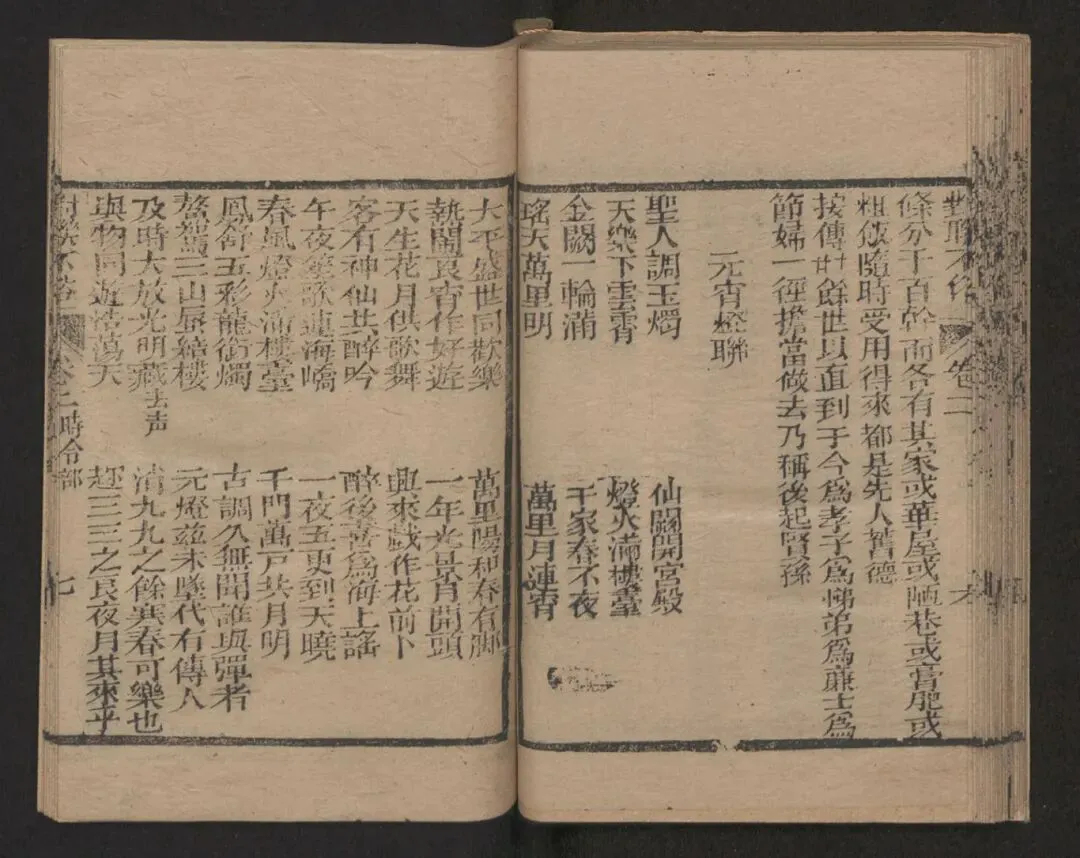 對聯不俗 卷二 六
條分于百幹而各有其家或華屋或陋巷或膏肥或
粗飯隨時受用得來都是先人舊德
按傳廿餘世以直到于今為孝子為悌弟為廉士為
節婦一徑擔當做去乃稱後起賢孫
元宵燈聯
聖人調玉燭 仙闕開宮殿
天樂下雲霄 燈火滿樓臺
金闕一輪滿 千家春不夜
瑤天萬里明 萬里月連宵
太平盛世同歡樂 萬里陽和春有腳
熱鬧良宵作好遊 一年光景月開頭
天生花月供歌舞 興來戲作花前卜
客有神仙共醉吟 醉後書為海上謠
午夜笙歌連海嶠 一夜五更到天曉
春風燈火滿樓臺 千門萬戶共月明
鳳舒五彩龍銜燭 古調久無聞誰與彈者
鰲駕三山蜃結樓 元燈茲未墜代有傳人
及時大放光明藏去声 消九九之餘寒春可樂也
與物同遊浩蕩天 趂三三之良夜月其來乎
對聯不俗 卷二時令部 七